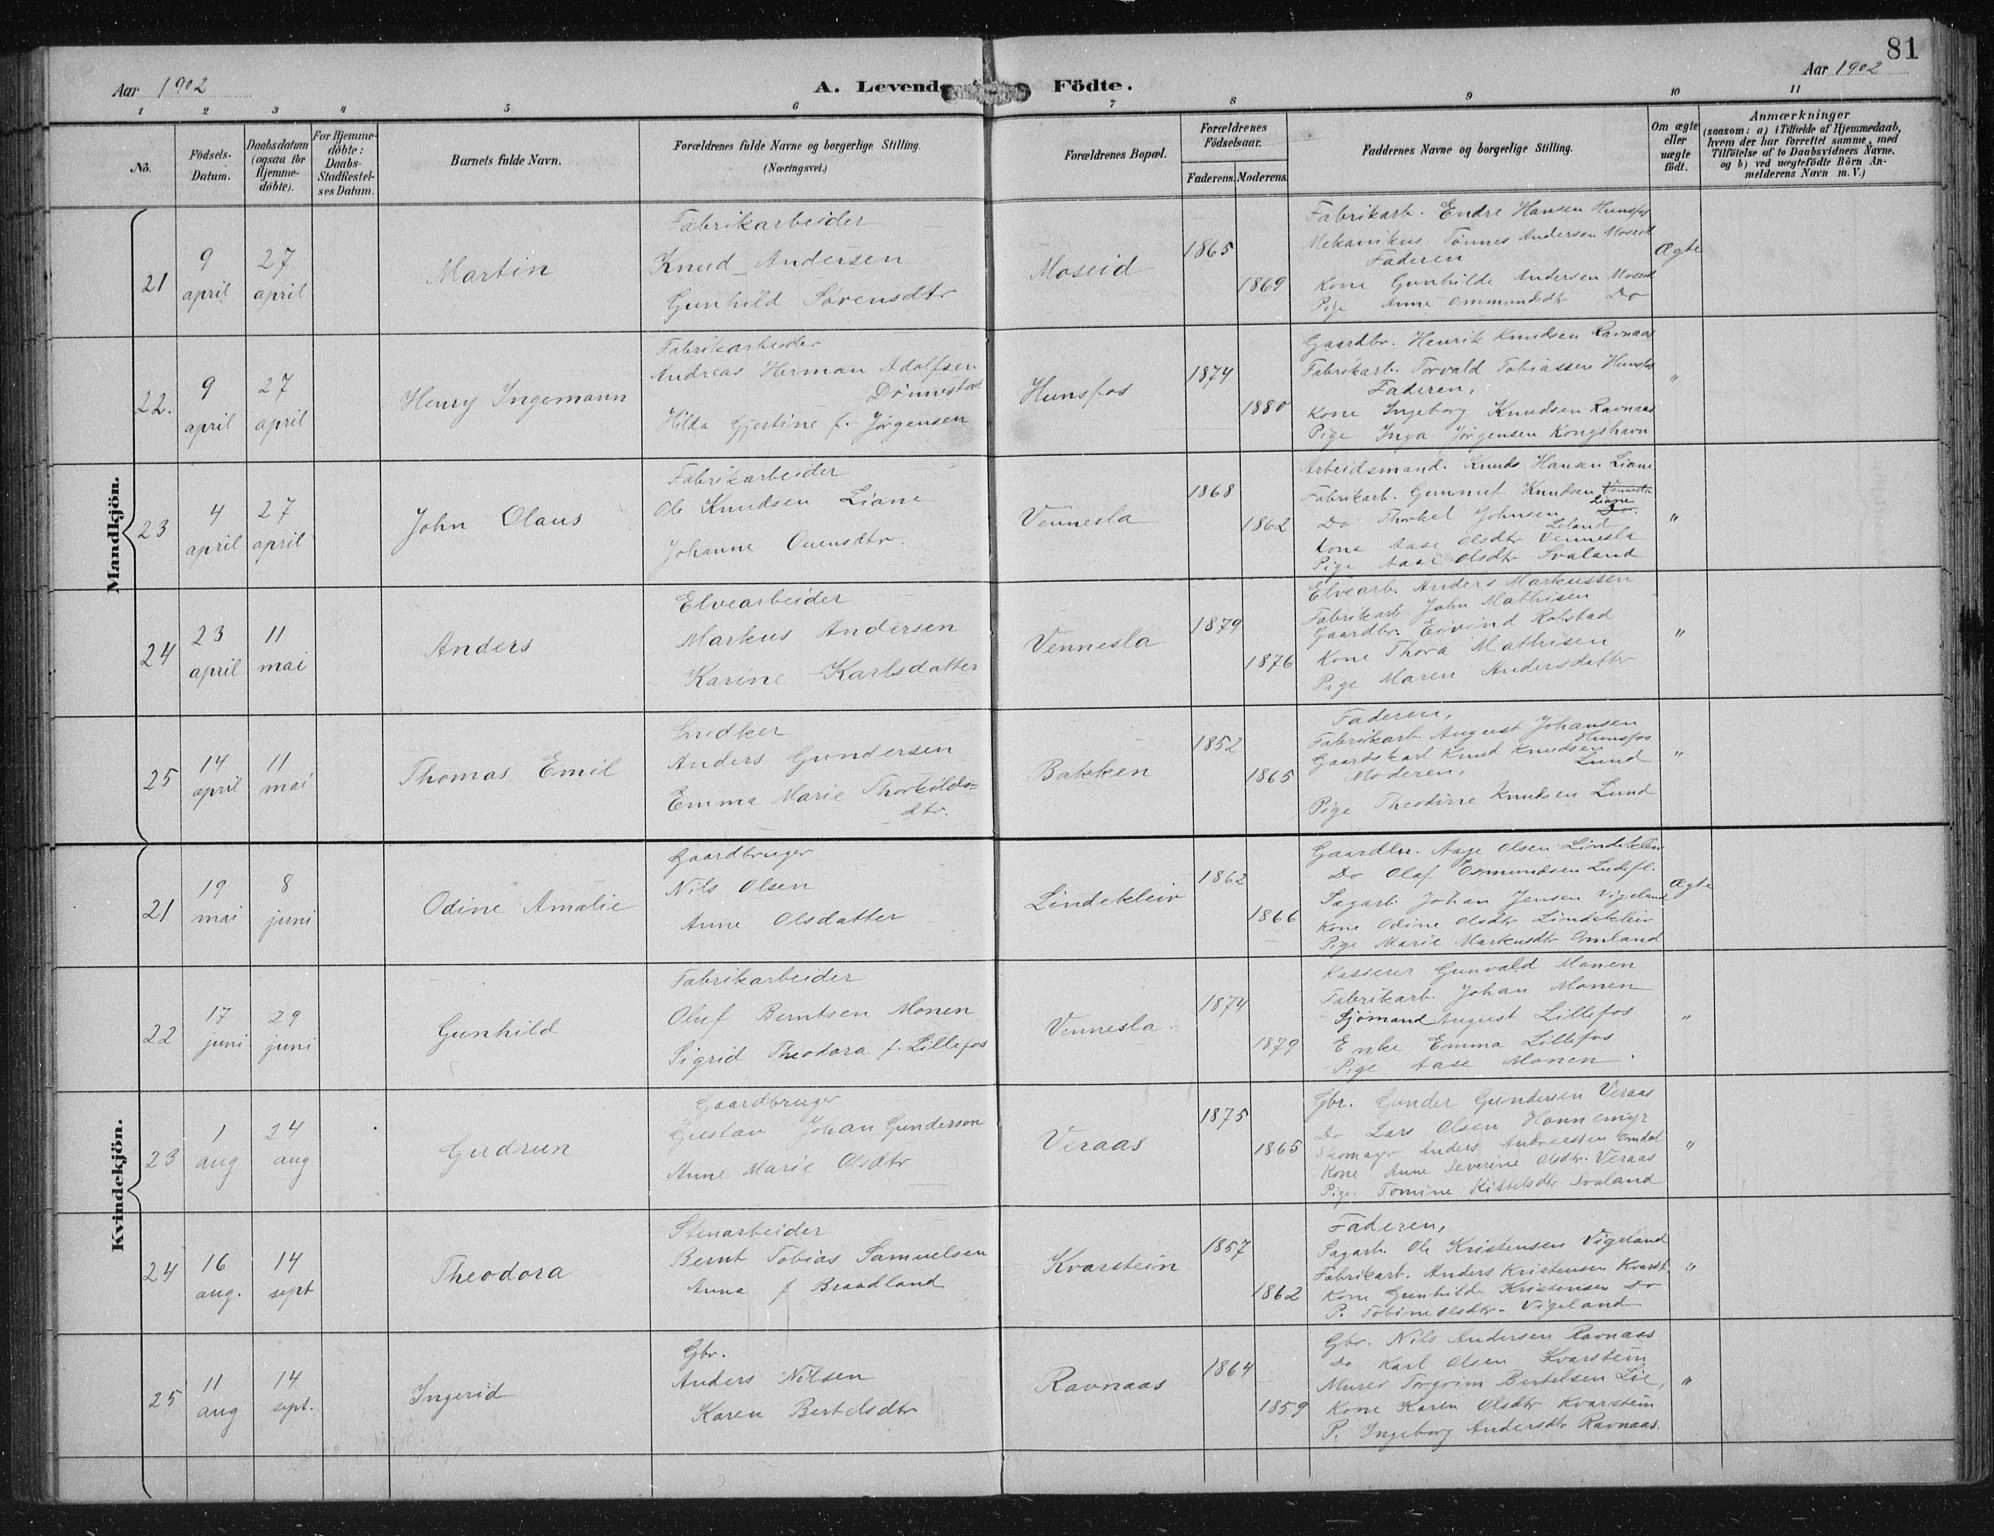 81
Aar 1902
A. Levende Födte.
Aar 1902
1 2 3 4 5 6 7 8 9 10 11
No.
Födsels-Datum.
Daabsdatum (ogsaa for Hjemme-döbte).
For Hjemme-döbte: Daabs-Stadfæstel-ses Datum.
Barnets fulde Navn.
Forældrenes fulde Navne og borgerlige Stilling.
(Næringsvei.)
Forældrenes Bopæl.
Forældrenes Födselsaar.
Faderens. Moderens.
Faddernes Navne og borgerlige Stilling.
Om ægte eller uægte födt.
Anmærkninger
(saasom: a) i Tilfælde af Hjemmedaab, hvem der har forrettet samme, med Tilföielse af to Daabsvidners Navne. og b) ved uægtefödte Börn An-melderens Navn m. V.)
Mandkjön.
21
9 april
27 april
Martin
Fabrikarbeider
Knud Andersen
Gunhild Sørensdtr
Moseid
1865
1869
Fabrikarb. Endre Hansen Hunsfos
Mekanikus Tønnes Andersen Moseid
Faderen
Kone Gunhilde Andersen Moseid
Pige Anne Ommundsdtr Do
Ægte
22.
9 april
27 april
Henry Ingemann
Fabrikarbeider
Andreas Herman Adolfsen
Dønnestad
Hilda Gjertine f. Jørgensen
Hunsfos
1874
1880
Gaardbr. Henrik Knudsen Ravnaas
Fabrikarb. Torvald Tobiassen Hunsfos
Faderen,
Kone Ingeborg Knudsen Ravnaas
Pige Inga Jørgensen Kongshavn
"
23
4 april
27 april
John Olaus
Fabrikarbeider
Ole Knudsen Liane
Johanne Ouensdtr.
Vennesla
1868
1862
Arbeidsmand. Knud Hansen Liane
Fabrikarb. Gunnuf Knudsen Vennesla
Liane
Do Thorkel Johnsen Do.
Leland
Kone Aase Olsdtr Vennesla
Pige Aase Olsdtr Svaland
"
24
23 april
11 mai
Anders
Elvearbeider
Markus Andersen
Karine Karlsdatter
Vennesla
1879
1876
Elvearb. Anders Markussen
Fabrikarb. John Mathisen
Gaardbr. Eivind Rolstad
Kone Thora Mathisen
Pige Maren Andersdatter
"
25
14 april
11 mai
Thomas Emil
Snedker
Anders Gundersen
Emma Marie Thorkilds=
dtr.
Bakken
1852
1865
Faderen,
Fabrikarb. August Johansen
Hunsfos
Gaardskarl Knud Knudsen
Lund
Moderen,
Pige Theodine Knudsen Lund
"
Kvindekjön.
21
19 mai
8 juni
Odine Amalie
Gaardbruger
Nils Olsen
Anne Olsdatter
Lindekleiv
1862
1866
Gaardbr. Aage Olsen Lindekleiv
Do Olaf Osmundsen
Sagarb. Johan Jensen Vigeland
Kone Odine Olsdtr Lindekleiv
Pige Marie Markusdtr Omland
Ægte
22
17 juni
29 juni
Gunhild
Fabrikarbeider
Oluf Berntsen Monen
Sigrid Theodora f. Lillefos
Vennesla.
1874
1879
Kasserer Gunvald Monen
Fabrikarb. Johan Monen
Sjømand August Lillefos
Enke Emma Lillefos
Pige Aase Monen.
"
23
1 aug
24 aug
Gudrun
Gaardbruger
Gustav Johan Gunderson
Anne Marie Olsdtr
Veraas
1875
1865
Gbr. Gunder Gundersen Veraas
Do Lars Olsen Honnemyr
Skomager Anders Andreassen Omdal
Kone Anne Severine Olsdtr. Veraas
Pige. Tomine Kittelsdtr Svaland
"
24
16 aug.
14 sept
Theodora
Stenarbeider
Bernt Tobias Samuelsen
Anna f Braadland
Kvarstein
1857
1862
Faderen,
Sagarb. Ole Kristensen Vigeland
Fabrikarb. Anders Kristensen Kvarst.
Kone Gunhilde Kristensen Do
P. Tobine Olsdtr. Vigeland
"
25
11 aug
14 sept.
Ingerid
Gbr.
Anders Nilsen
Karen Bertelsdtr
Ravnaas
1864
1859
Gbr. Nils Andersen Ravnaas
Do Karl Olsen Kvarstein
Murer Torgrim Bertelsen Lie,
Kone Karen Olsdtr Kvarstein
P. Ingeborg Andersdtr Ravnaas.
"